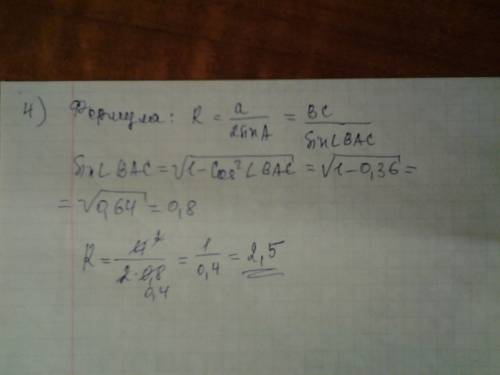 4) Формула: R = a / 2sinA = BC / Sin∠BAC
Sin∠BAC = √1 - Cos²∠BAC = √1 - 0,36 =
= √0,64 = 0,8
R = 4 2 / 2·0,8 0,4 = 1 / 0,4 = 2,5